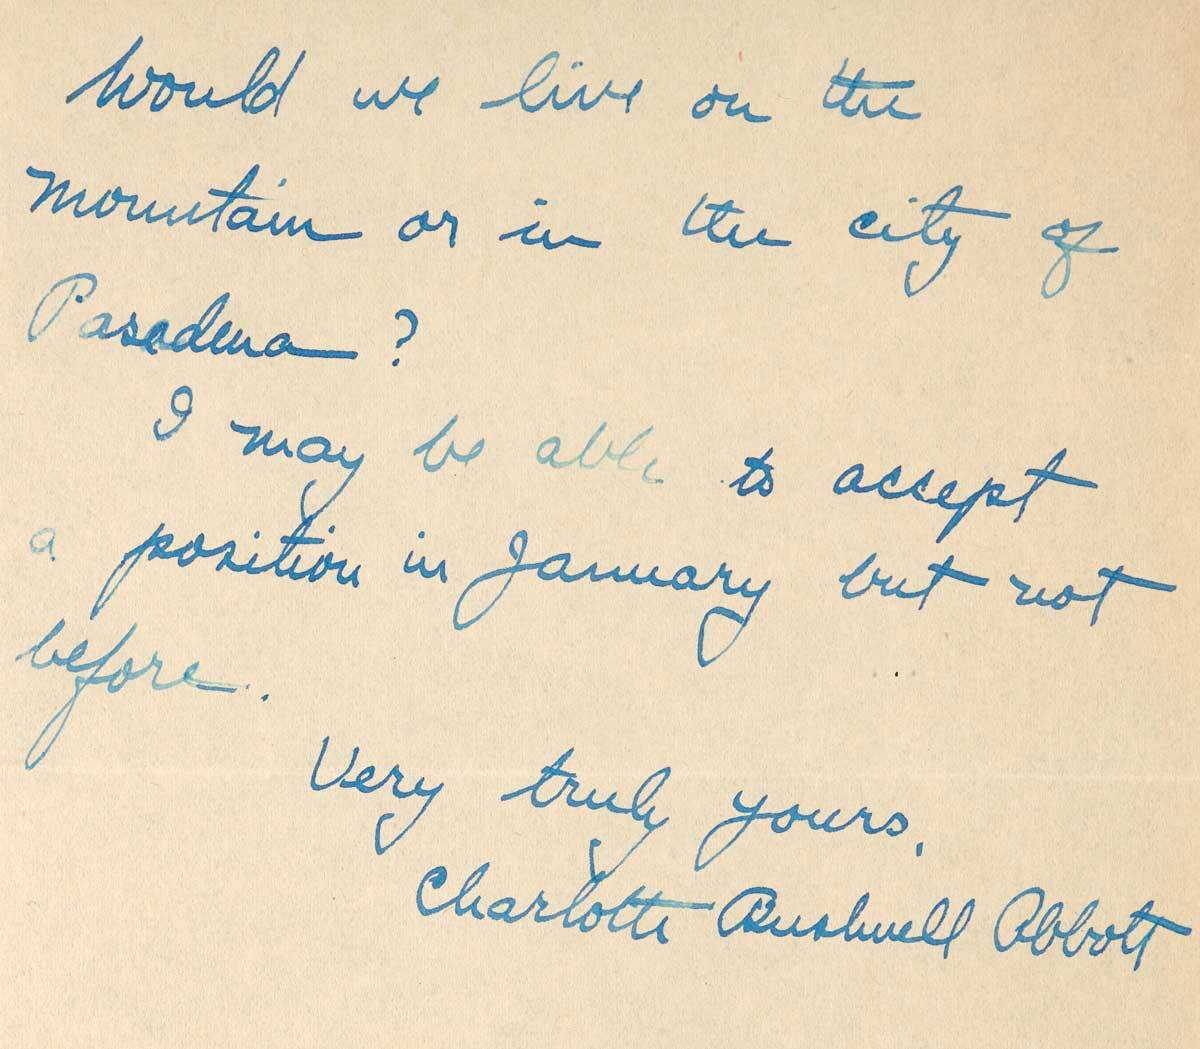 Would we live on the
mountain or in the city of
Pasadena?
I may be able to accept
a position in January but not
before.
Very truly yours,
Charlotte Bushnell Abbott